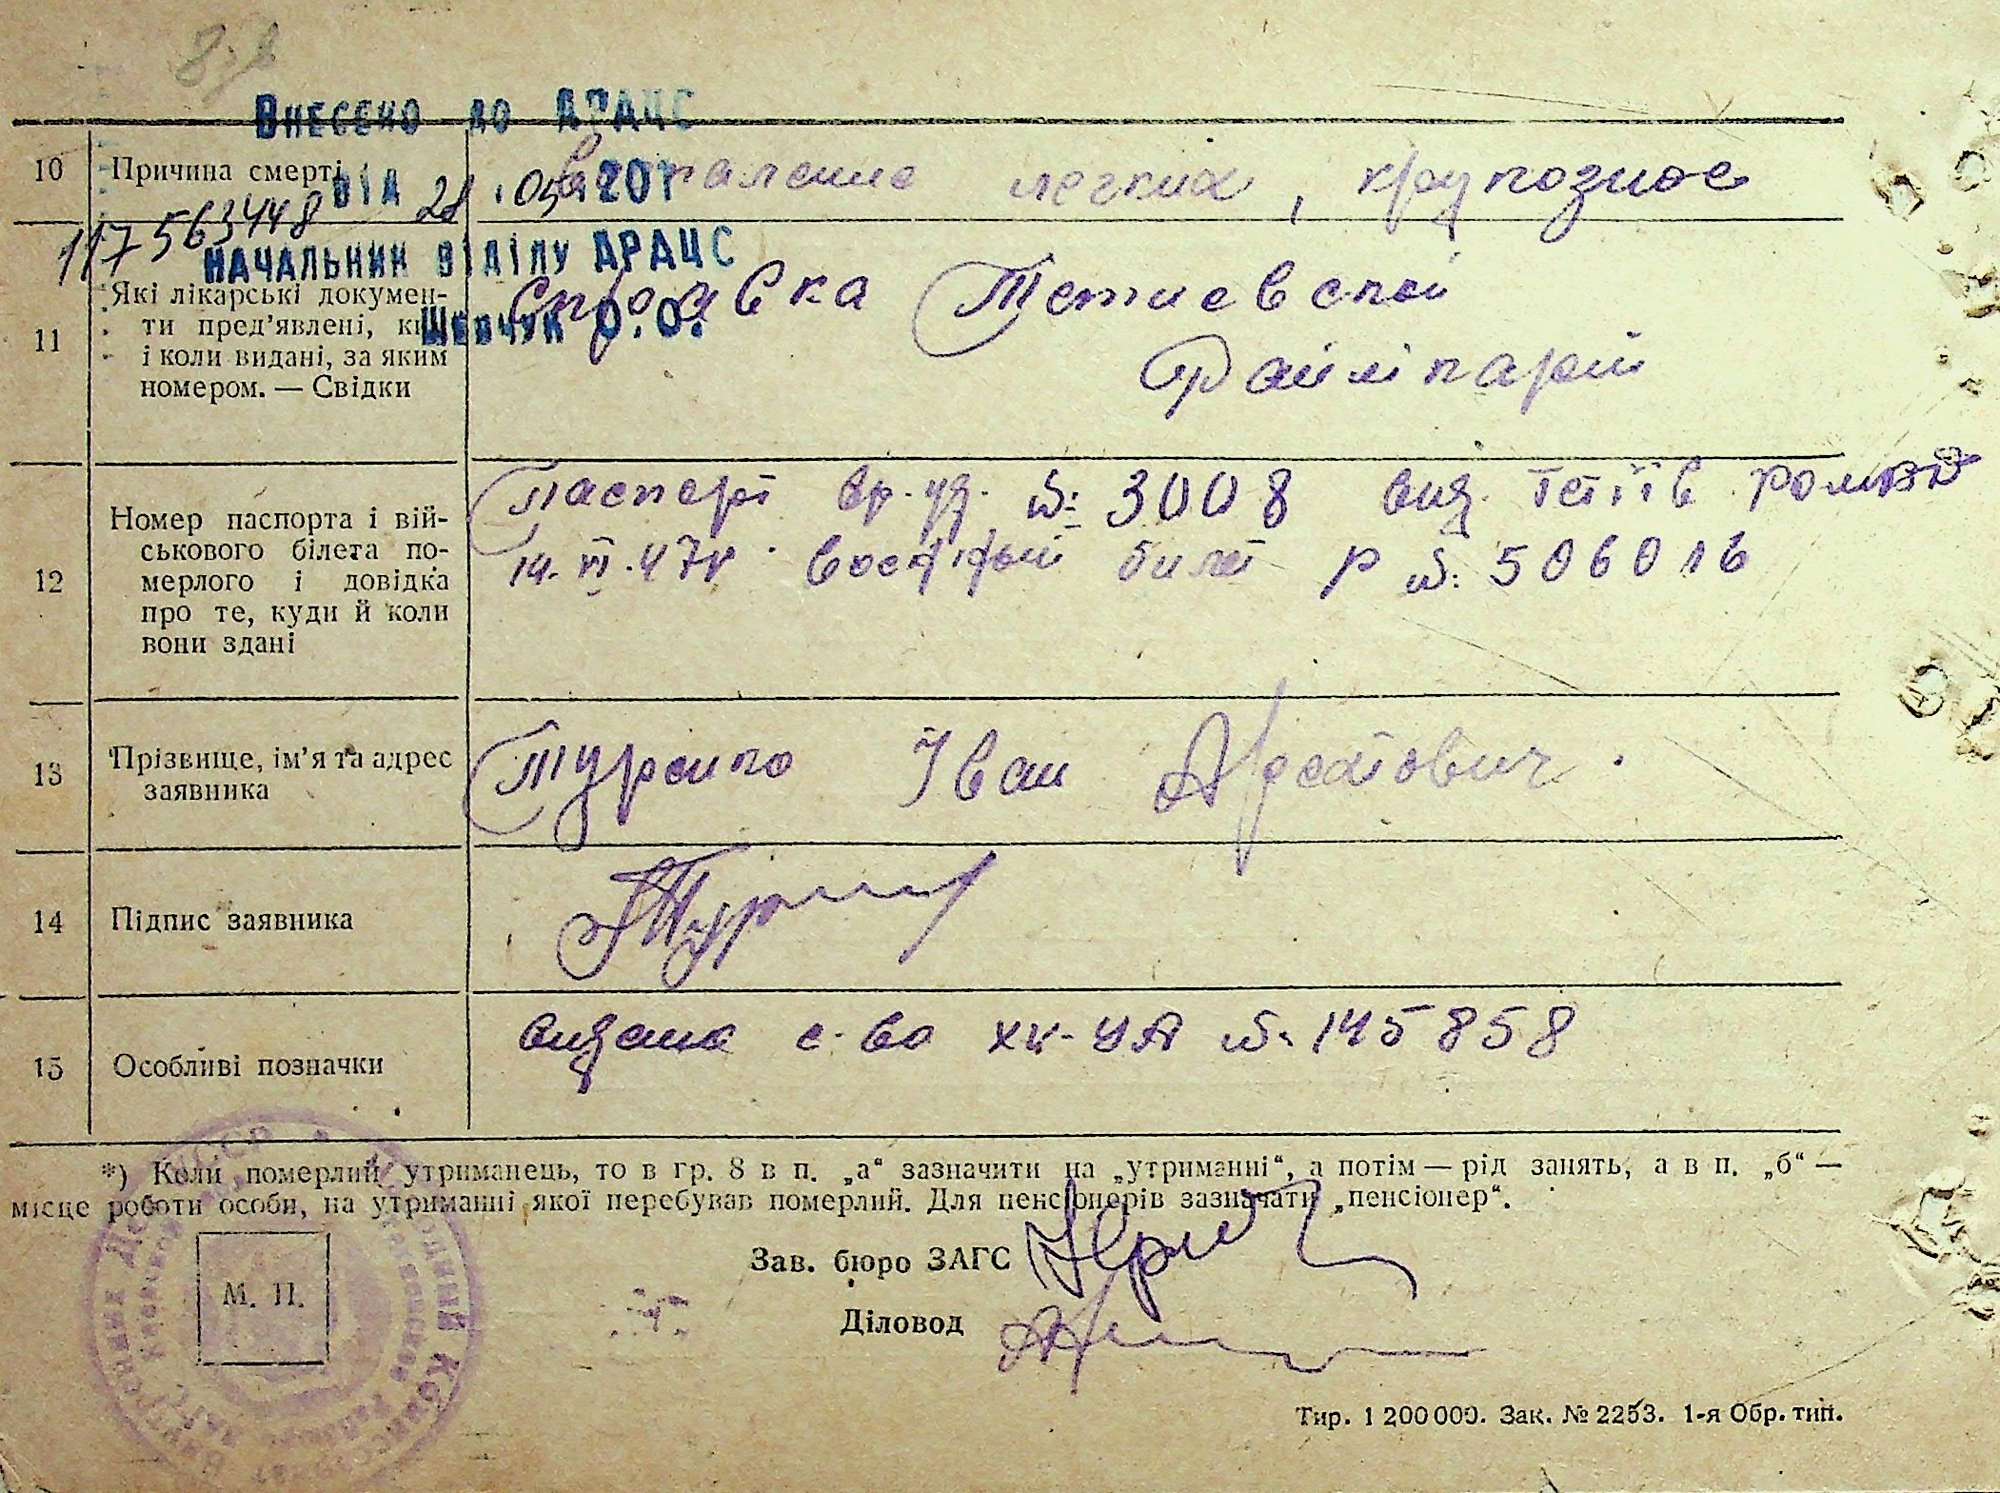 Внесено до ДРАЦС
10 Причина смерті Воспаление легких, крупозное
від 21.05.201
117 563448
начальник відділу ДРАЦС
Шевчук О.О.
11 Які лікарські докумен-
ти пред’явлені, ким
і коли видані, за яким
номером. — Свідки
Справка Тетиевской
Райлікарні
12 Номер паспорта і вій-
ськового білета по-
мерлого і довідка
про те, куди й коли
вони здані
Паспорт вр. уд. №: 3008 вид. Тетіїв
14. VI. 47г. билет Р №: 506016
13 Прізвище, ім’я та адрес
заявника
Іван
14 Підпис заявника
15 Особливі позначки
видана с-во №: 145858
*) Коли померлий утриманець, то в гр. 8 в п. „а“ зазначити на „утриманні“, а потім — рід занять, а в п. „б“ —
місце роботи особи, на утриманні якої перебував померлий. Для пенсіонерів зазначати „пенсіонер“.
М. П.
Зав. бюро ЗАГС
Діловод
Тир. 1 200 000. Зак. № 2253. 1-я Обр. тип.